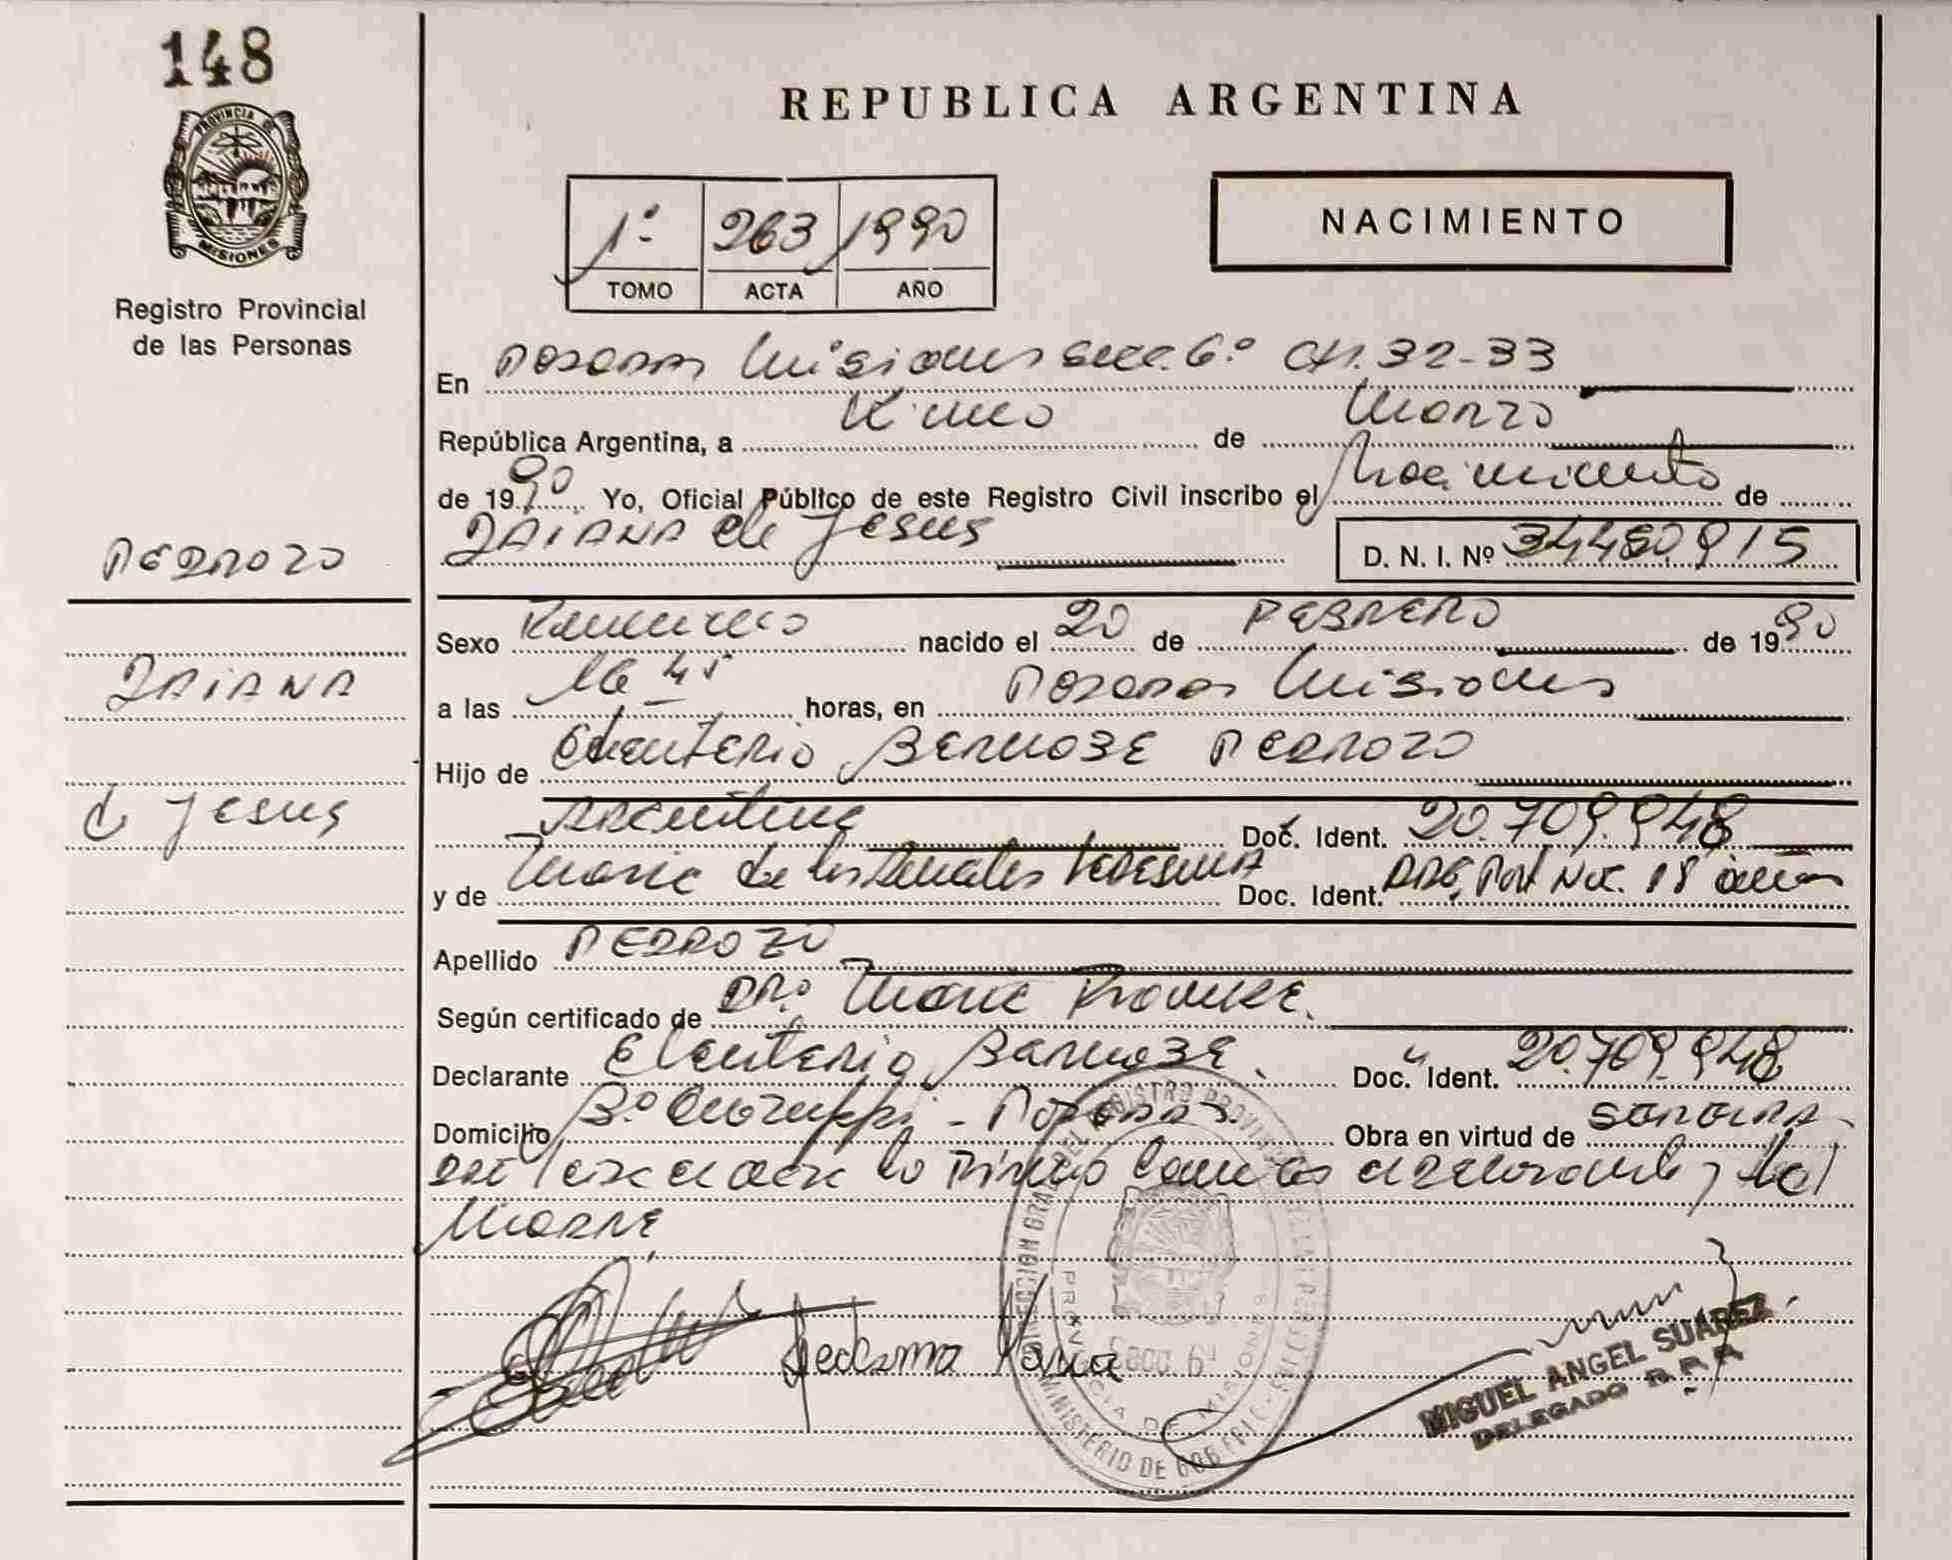 148
PROVINCIA DE
MISIONES
Registro Provincial
de las Personas
PEDROZO
DAIANA
de Jesus
REPUBLICA ARGENTINA
1º 263 1990
TOMO ACTA AÑO
NACIMIENTO
En Posadas Misiones Secc. 6º CH. 32-33
República Argentina, a Cinco de Marzo
de 1990 Yo, Oficial Público de este Registro Civil inscribo el Nacimiento de
DAIANA de Jesus D. N. I. Nº 34480915
Sexo Femenino nacido el 20 de FEBRERO de 1990
a las 16 45 horas, en Posadas Misiones
Hijo de Eleuterio PEDROZO
Argentino Doc. Ident. 20.709.948
y de Maria de los LEDESMA Doc. Ident. 18 años
Apellido PEDROZO
Según certificado de DRA. Maria
Declarante Eleuterio Doc. Ident. 20.709.948
Domicilio Bº - Posadas Obra en virtud de
lo Firman el declarante y la
Madre
Ledesma Maria
MINISTERIO DE GOB.
MIGUEL ANGEL SUAREZ
DELEGADO